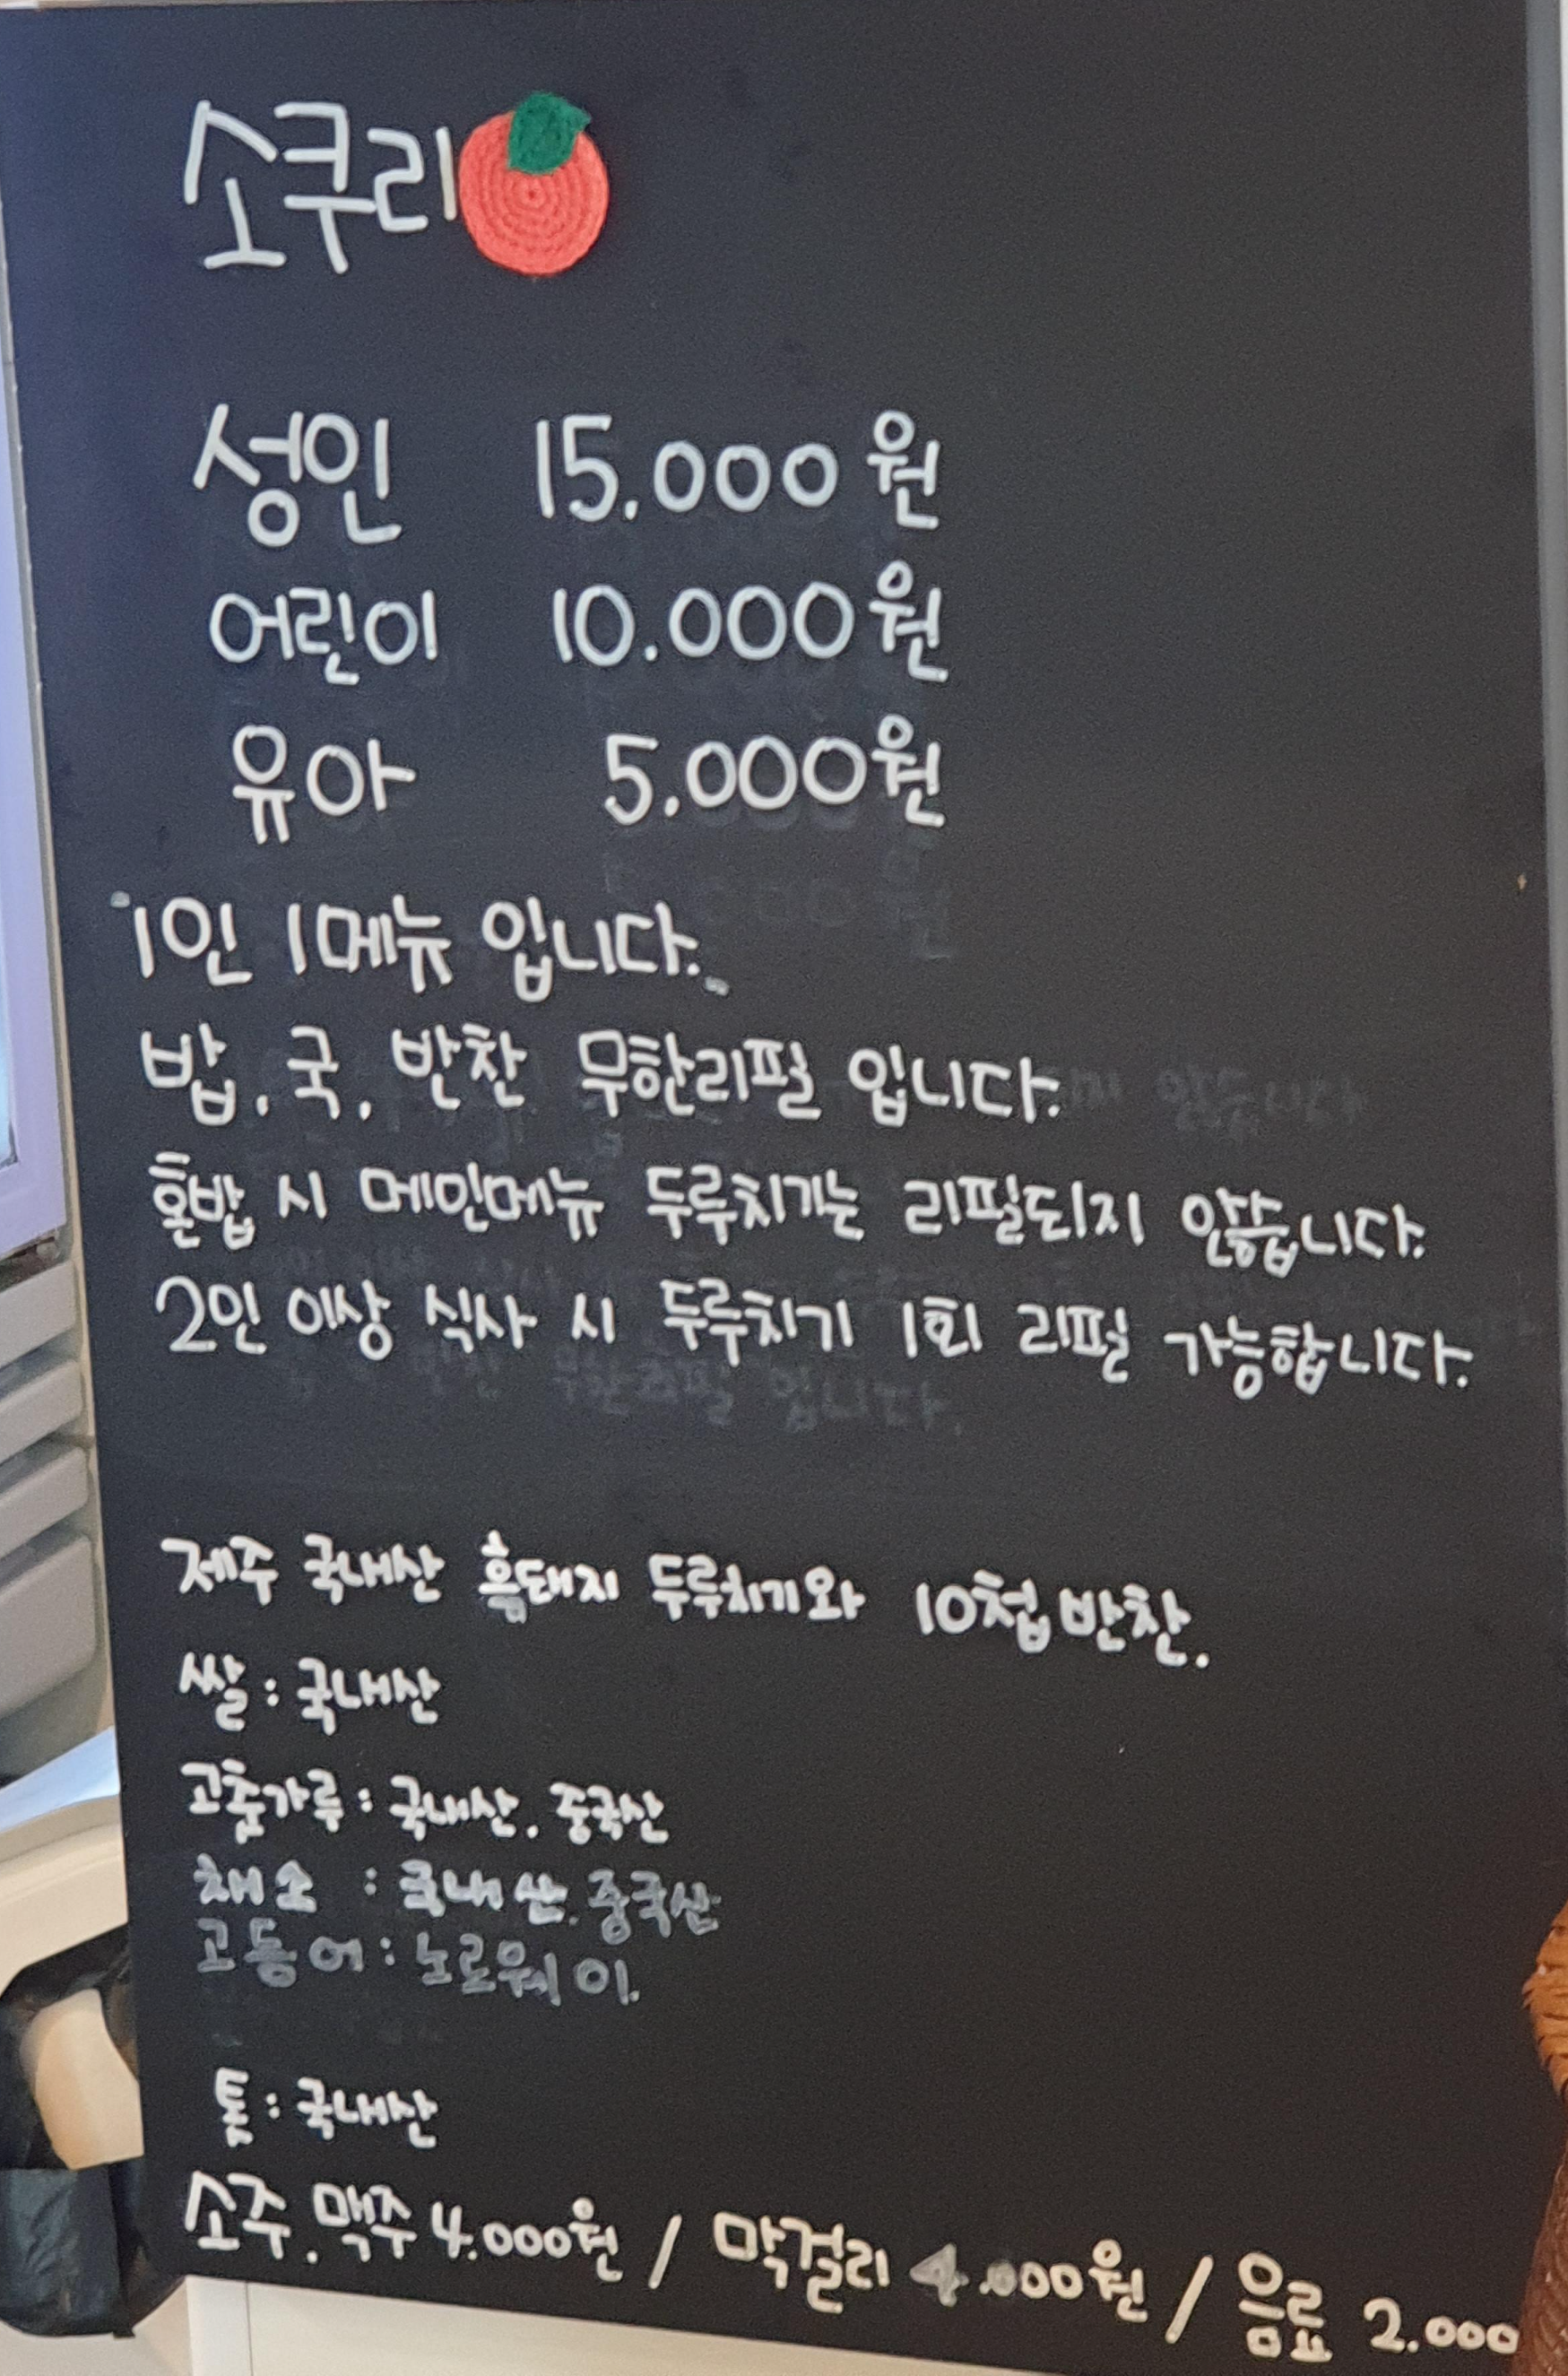 소쿠리
성인 15.000원
어린이 10.000원
유아 5.000원
"1인 1메뉴 입니다."
밥. 국. 반찬 무한리필 입니다.
혼밥 시 메인메뉴 두루치기는 리필되지 않습니다.
2인 이상 식사 시 두루치기 1회 리필 가능합니다.
제주 국내산 흑돼지 두루치기와 10첩반찬.
쌀 : 국내산
고춧가루 : 국내산. 중국산
채소 : 국내산. 중국산
고등어 : 노르웨이.
톳 : 국내산
소주. 맥주 4.000원 / 막걸리 4.000원 / 음료 2.000